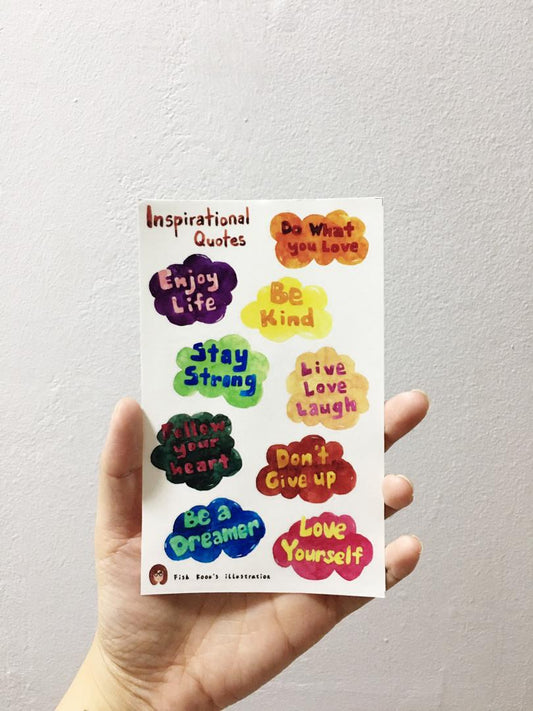 Inspirational
Quotes
Do What
you Love
Enjoy
Life
Be
Kind
Stay
Strong
Live
Love
Laugh
Follow
your
heart
Don't
Give up
Be a
Dreamer
Love
Yourself
Fish Koon's illustration